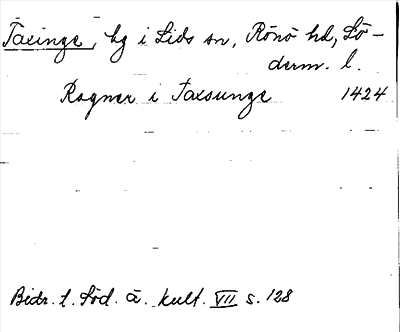 Taxinge, hg i Lids sn, Rönö hd, Sö-
derm. l.
Ragner i Taxsunge 1424
Bidr. t. Söd. ä. kult. VII s. 128